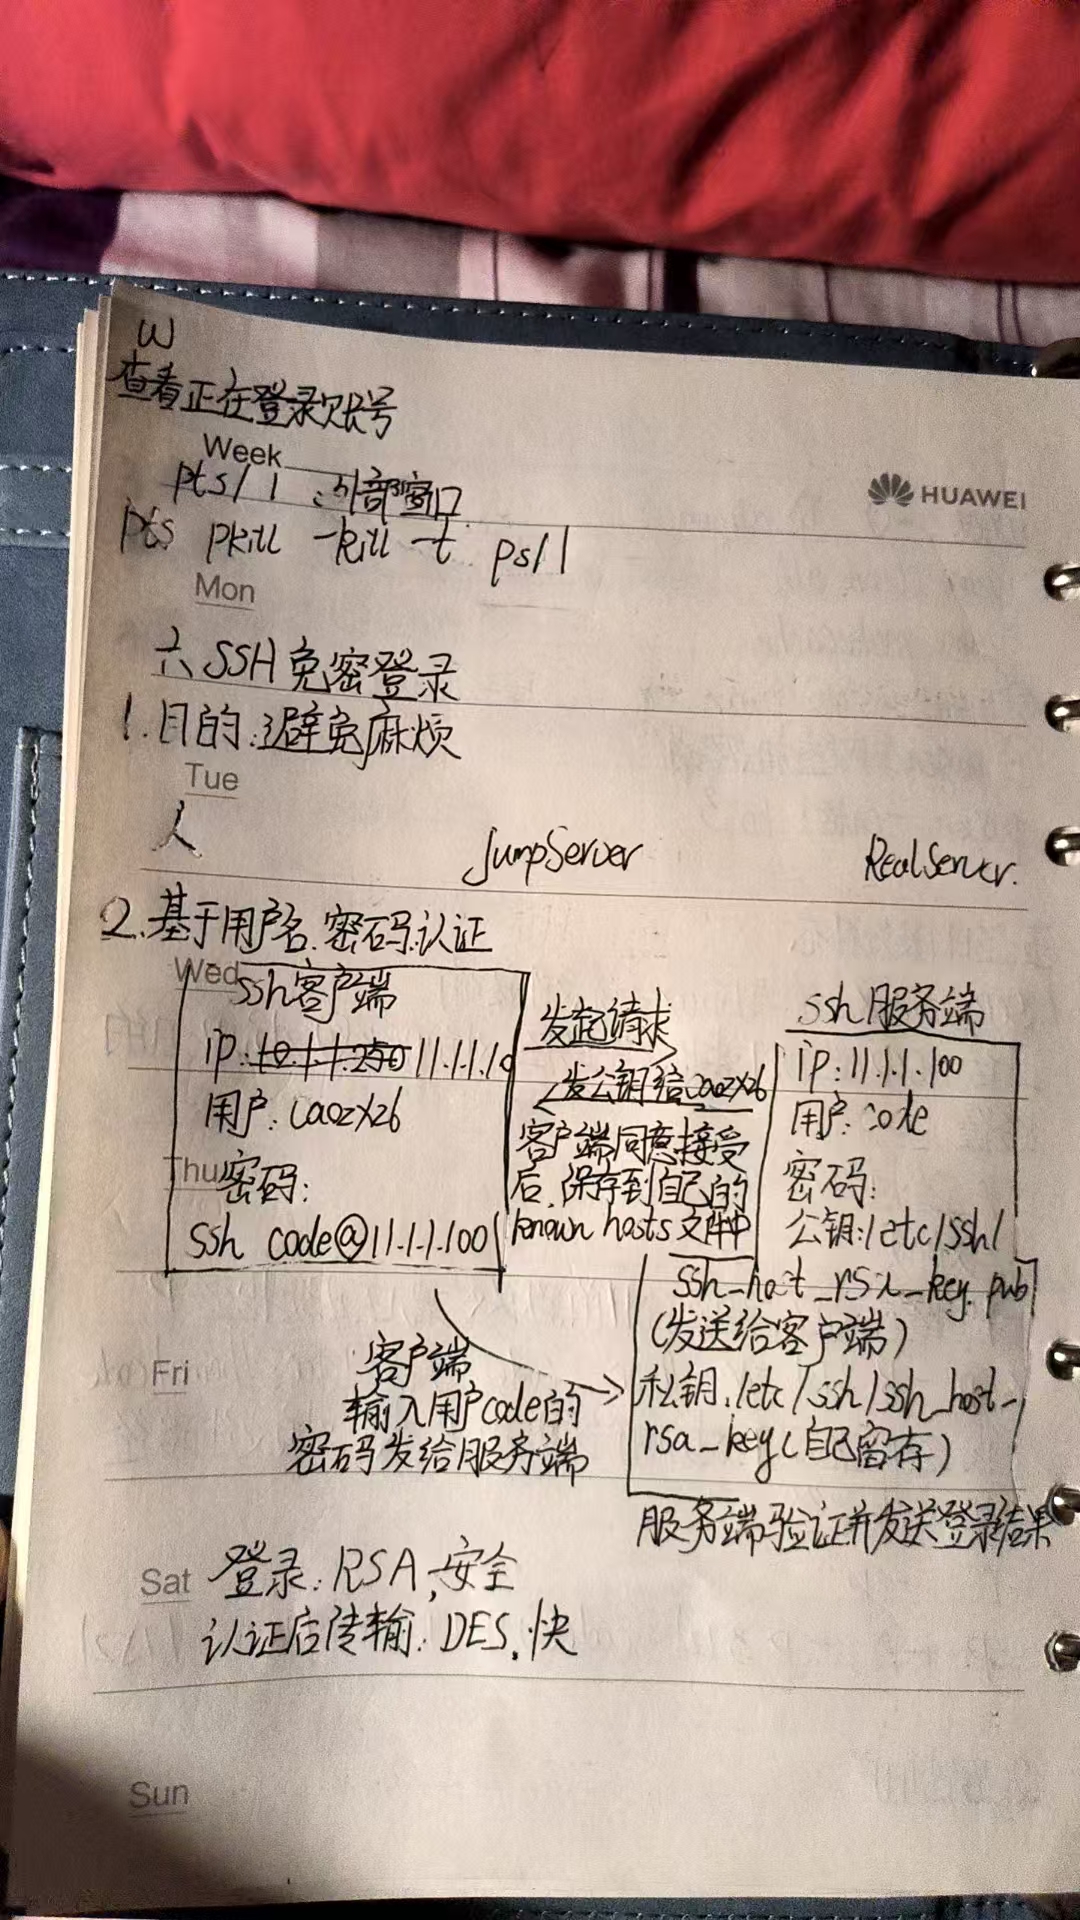 W
查看正在登录账号
Week
pts/1:外部窗口
HUAWEI
pts pkill -kill -t ps/1
Mon
六 SSH 免密登录
1.目的:避免麻烦
Tue
人 JumpServer RealServer.
2.基于用户名.密码认证
Wed
ssh客户端
ip:10.1.1.250 11.1.1.10
用户:caozx26
Thu
密码:
ssh code@11.1.1.100
发起请求
发公钥给caozx26
客户端同意接受
后,保存到自己的
known hosts 文件中
ssh 服务端
ip:11.1.1.100
用户:code
密码:
公钥:/etc/ssh/
ssh_host_rsa_key.pub
(发送给客户端)
私钥:/etc/ssh/ssh_host_
rsa_key(自己留存)
Fri
客户端
输入用户code的
密码发给服务端
服务端验证并发送登录结果
Sat
登录:RSA,安全
认证后传输:DES,快
Sun